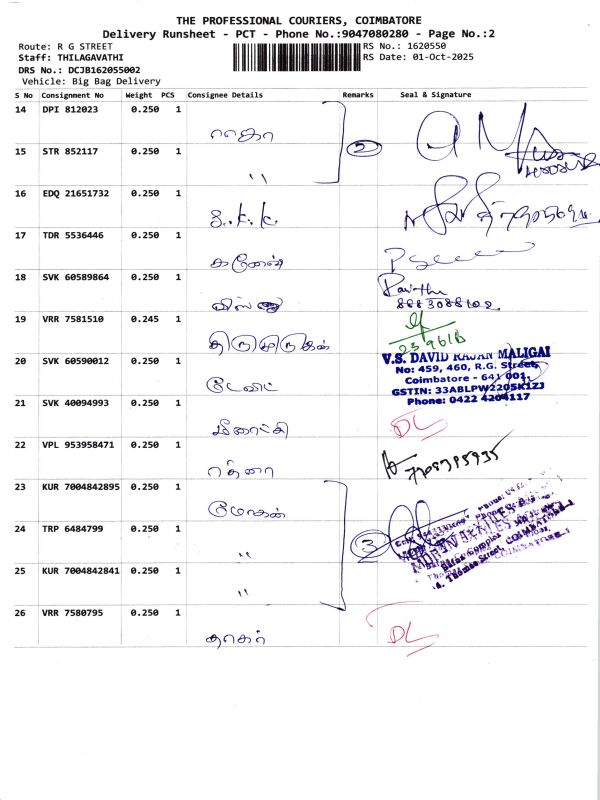 THE PROFESSIONAL COURIERS, COIMBATORE
Delivery Runsheet - PCT - Phone No.:9047080280 - Page No.:2
Route: R G STREET RS No.: 1620550
Staff: THILAGAVATHI RS Date: 01-Oct-2025
DRS No.: DCJB162055002
Vehicle: Big Bag Delivery
S No Consignment No Weight PCS Consignee Details Remarks Seal & Signature
14 DPI 812023 0.250 1
2
15 STR 852117 0.250 1
"
16 EDQ 21651732 0.250 1
S.K.K.
17 TDR 5536446 0.250 1
கணேஷ்
18 SVK 60589864 0.250 1
8883088102
19 VRR 7581510 0.245 1
திருமுருகன்
23961B
20 SVK 60590012 0.250 1
டேவிட்
V.S. DAVID RAJAN MALIGAI
No: 459, 460, R.G. Street,
Coimbatore - 641 001.
GSTIN: 33ABLPW2205K1ZJ
Phone: 0422 4204117
21 SVK 40094993 0.250 1
மீனாட்சி DL
22 VPL 953958471 0.250 1
ரத்னா 7708795935
23 KUR 7004842895 0.250 1
மோகன்
24 TRP 6484799 0.250 1
" 3
25 KUR 7004842841 0.250 1
"
26 VRR 7580795 0.250 1
தாகர் DL